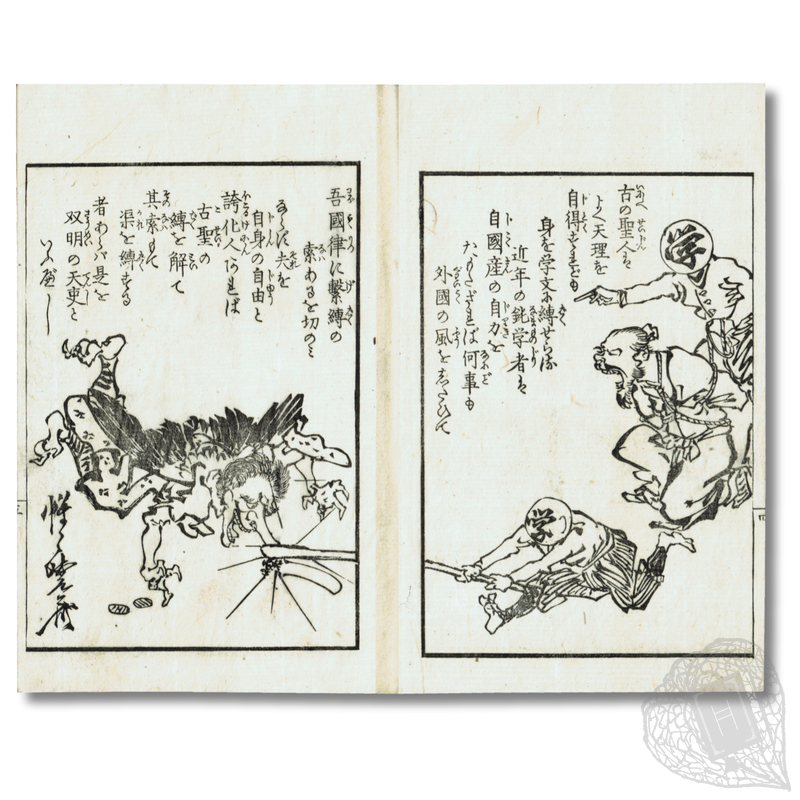 古の聖人は
よく天理を
自得
身を学文に縛せられず
近年の鈍学者は
自國産の自力を
何事も
外國の風をしたひて
学
学
吾國律に繋縛の
索あるを切のミ
ならず夫を
自身の自由と
誇化人あれば
古聖の
縛を解て
其索もて
渠を縛する
者あらバ是を
双明の天吏と
いふべし
惺々暁斎